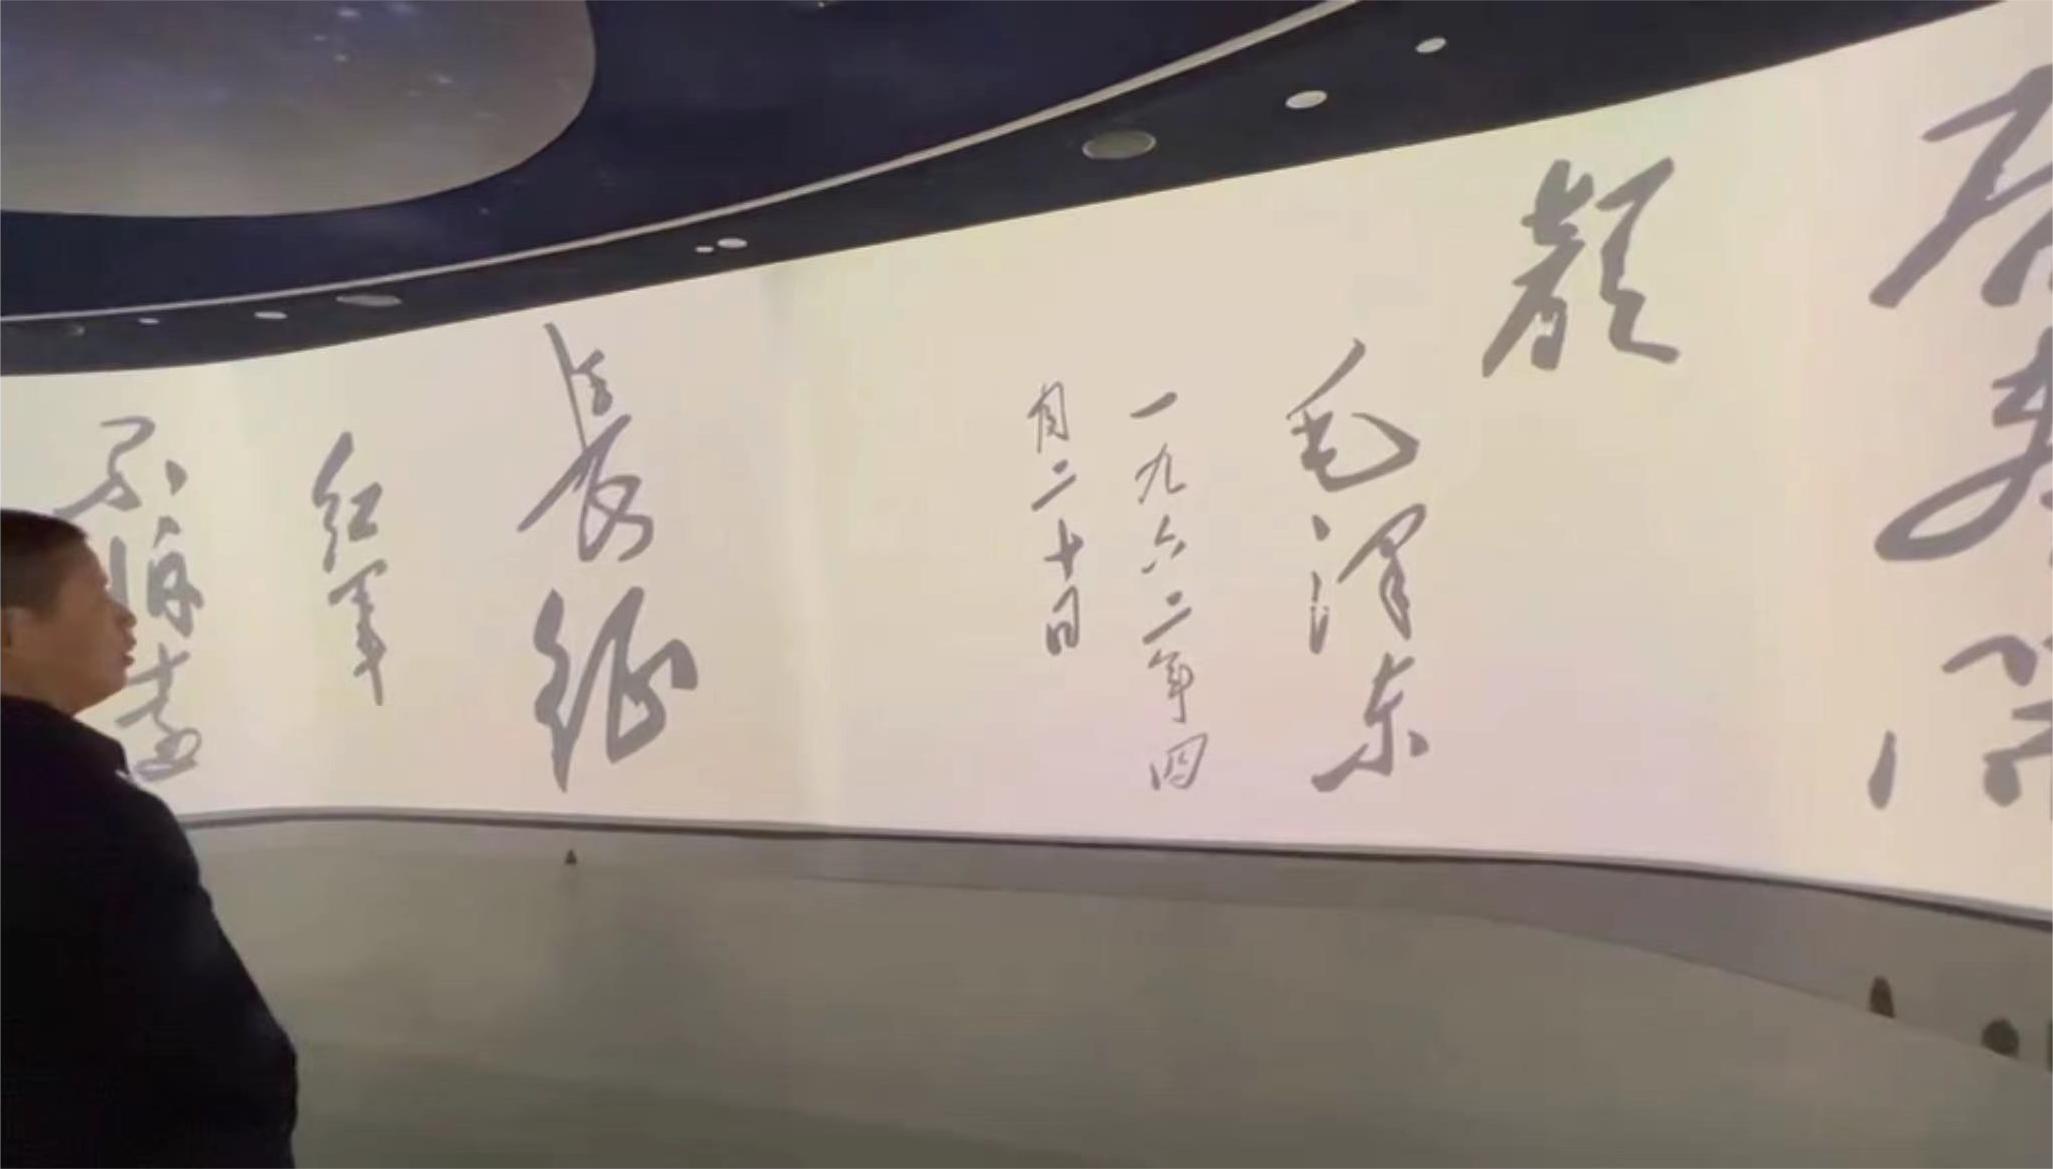 颜
毛泽东
一九六二年四
月二十日
長征
红军
不怕远